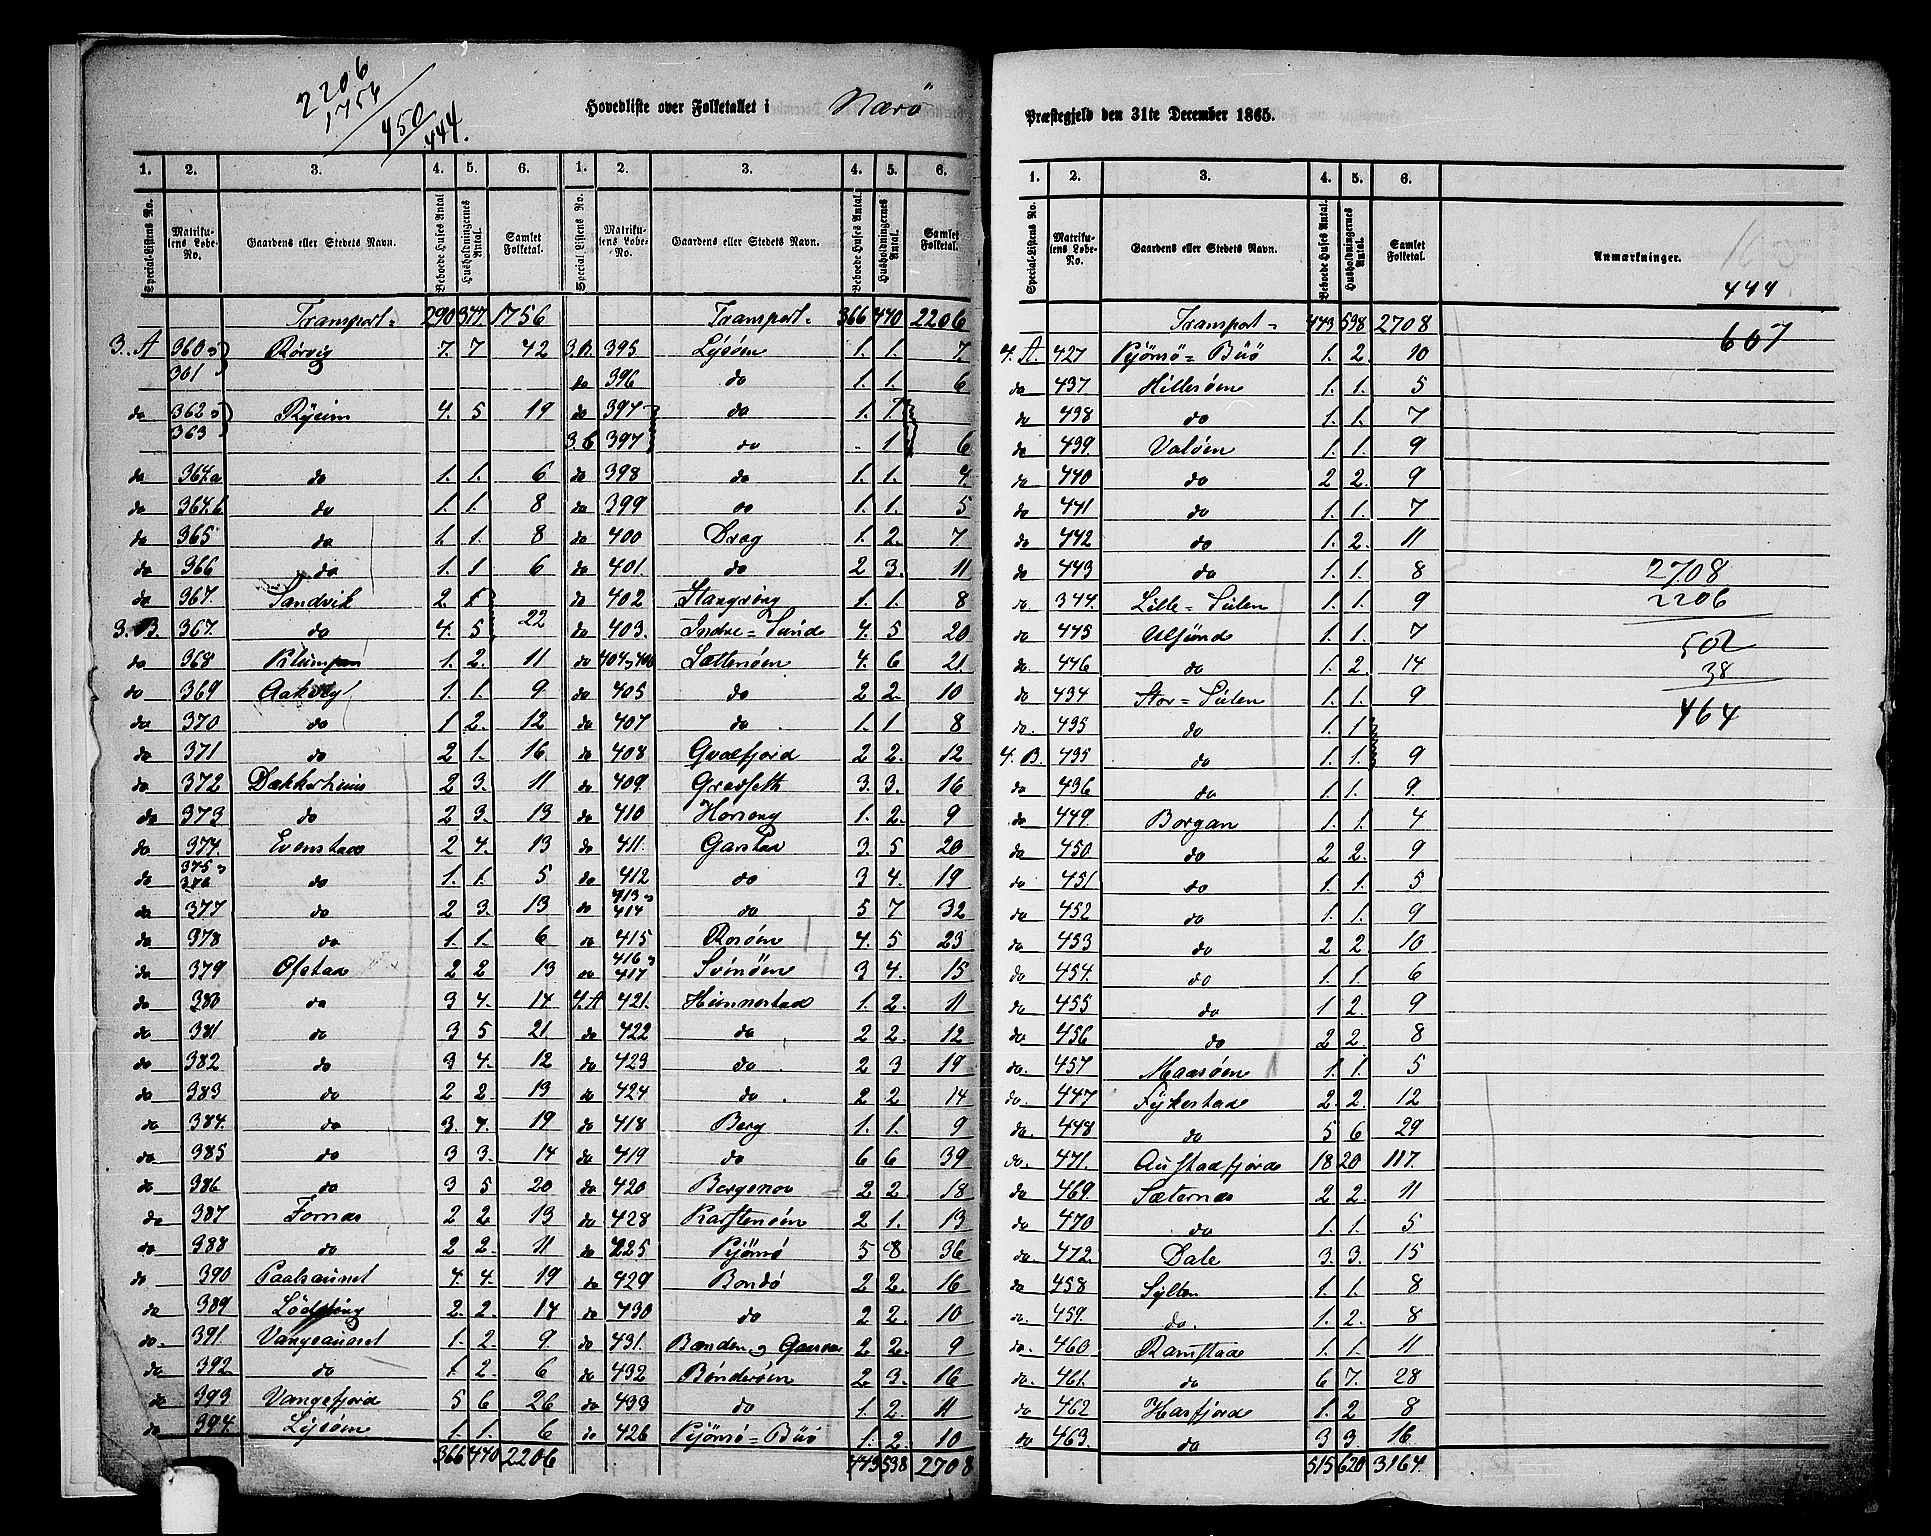 2206
1756
450
444.
Hovedliste over Folketallet i Nærö
1. 2. 3. 4. 5. 6. 1. 2. 3. 4. 5. 6.
Special-Listens No. Matrikulens Løbe-No. Gaardens eller Stedets Navn. Beboede Huses Antal Husholdningernes Antal. Samlet Folketal. Special Listens No. Matrikulens Løbe-No. Gaardens eller Stedets Navn. Beboede Huses Antal. Husholdningernes Antal. Samlet Folketal.
Transport= 290 377. 1756 Transport= 366 470 2206
3. A 360 og 361 Rörvig 7. 7 42 3.B. 395 Lysöen 1. 1. 7.
do 396 do 1. 1. 6
do 362 og 363 Ryeim 4. 5 19 do 397 do 1. 1
3.C 397 do 1 6
do 364.a do 1. 1. 6 do 398 do 1. 1. 4.
do 364.b do 1. 1. 8 do 399 do 1. 1. 5
do 365 do 1. 1. 8 do 400 Drag 1. 2. 7.
do 366 do 1. 1 6 do 401. do 2 3. 11
do 367. Sandvik 2 1 do 402 Stangröng 1. 1. 8
3. B. 367. do 4. 5 22 do 403. Indre=Sund 4. 5 20
do 368 Klumpen 1. 2. 11 do 404 og 406 Sætteröen 4. 6 21.
do 369 Aakvig 1. 1. 9. do 405 do 2 2. 10
do 370 do 1 2. 12 do 407 do 1. 1 8
do 371 do 2 1. 16. do 408 Gvalfjord 2 2. 12
do 372 Dækkerhuus 2 3. 11 do 409. Gravseth 3. 3. 16
do 373 do 2 3. 13 do 410 Horseng 1. 2. 9
do 374. Evenstad 2 4. 13 do 411. Garstad 3. 5 20
do 375 og 376 do 1. 1. 5 do 412 do 3 4. 19
do 377 do 2 3. 13 do 413 og 414 do 5 7 32
do 378 do 1. 1. 6 do 415 Rosöen 4. 5 23
do 379 Ofstad 2 2 13 do 416 og 417 Svinöen 3 4. 15
do 380 do 3 4. 14 4.A 421. Hunnestad 1. 2. 11
do 381 do 3 5 21. do 422 do 2 2. 12
do 382 do 3 4. 12 do 423 do. 2 3 19
do 383 do 2 2. 13 do 424 do. 2 2 14
do 384. do 3 4. 19 do 418 Berg 1. 1. 9
do 385 do 3 3. 14 do 419 do 6 6 39
do 386 do 3 5 20 do 420 Bergenov 2 2. 18
do 387 Fornæs 2 2 13 do 428 Karstenöen 2 1. 13
do 388 do 2 2. 11 do 425 Kjönsö 5 8 36
do 390 Paalsaunet 4. 4. 19 do 429 Bondö 2 2. 16
do 389 2. 2. 14 do 430 do 2 2. 10
do. 391. Vangsaunet 1. 2. 9. do 431. Banden og Gaasvær 2 2. 9
do 392 do 1. 2. 6 do 432 Bondesöen 2 3. 16
do 393 Vangefjord 5 6 26 do 433 do 1. 2. 11
do 394. Lysöen 1. 1. 6 do 426 Kjönsö=Buö 1. 2. 10
366 470 2206 443 538 2708
Præstegjeld den 31te December 1865.
1. 2. 3. 4. 5. 6.
Special-Listens No. Matrikulens Løbe-No. Gaardens eller Stedets Navn. Beboede Huses Antal. Husholdningernes Antal. Samlet Folketal. Anmærkninger.
444
607
Transport- 443 538 2708
4. A. 427 Kjönsö=Buö 1. 2. 10
do 437 Hillesöen 1. 1. 5
do 438 do 1. 1. 7
do 439. Valöen 1. 1. 9
do 440 do 2 2. 9
do 441 do 1. 1. 7
do 442 do 1. 2. 11
do 443 do 1. 1. 8
do. 344. Lille=Sulen 1. 1. 9
do 445 Ulsund 1. 1. 7
do 446 do 1. 2. 14
do 434 Stor=Sulen 1. 1. 9
do. 435 do 1. 1
4. B. 435 do 1. 1. 9
do 436 do 1. 1. 9.
do 449. Borgan 1. 1. 4
do 450. do 2 2. 9
do 451 do 1. 1. 5
do 452 do 1. 1. 9
do 453 do 2 2 10
do 454. do 1. 1 6
do 455 do 1 2. 9
do 456 do 2 2. 8
do. 457 Maasöen 1. 1. 5
do. 447 Fykestad 2. 2. 12
do. 448 do 5 6 29
do. 471. Austadfjord 18 20 117.
do 469. Sæternæs 2 2. 11
do 470 do 1. 1. 5
do 472. Dale 3. 3. 15
do 458 Sylten 1. 1. 8
do. 459. do. 1. 2. 8
do. 460 Ramstad 1. 1. 11
do. 461. do 6 7. 28
do. 462 Hasfjord 1. 2 8
do 463. do 3 3. 16
515 620 3164.
2708
2206
502
38
464